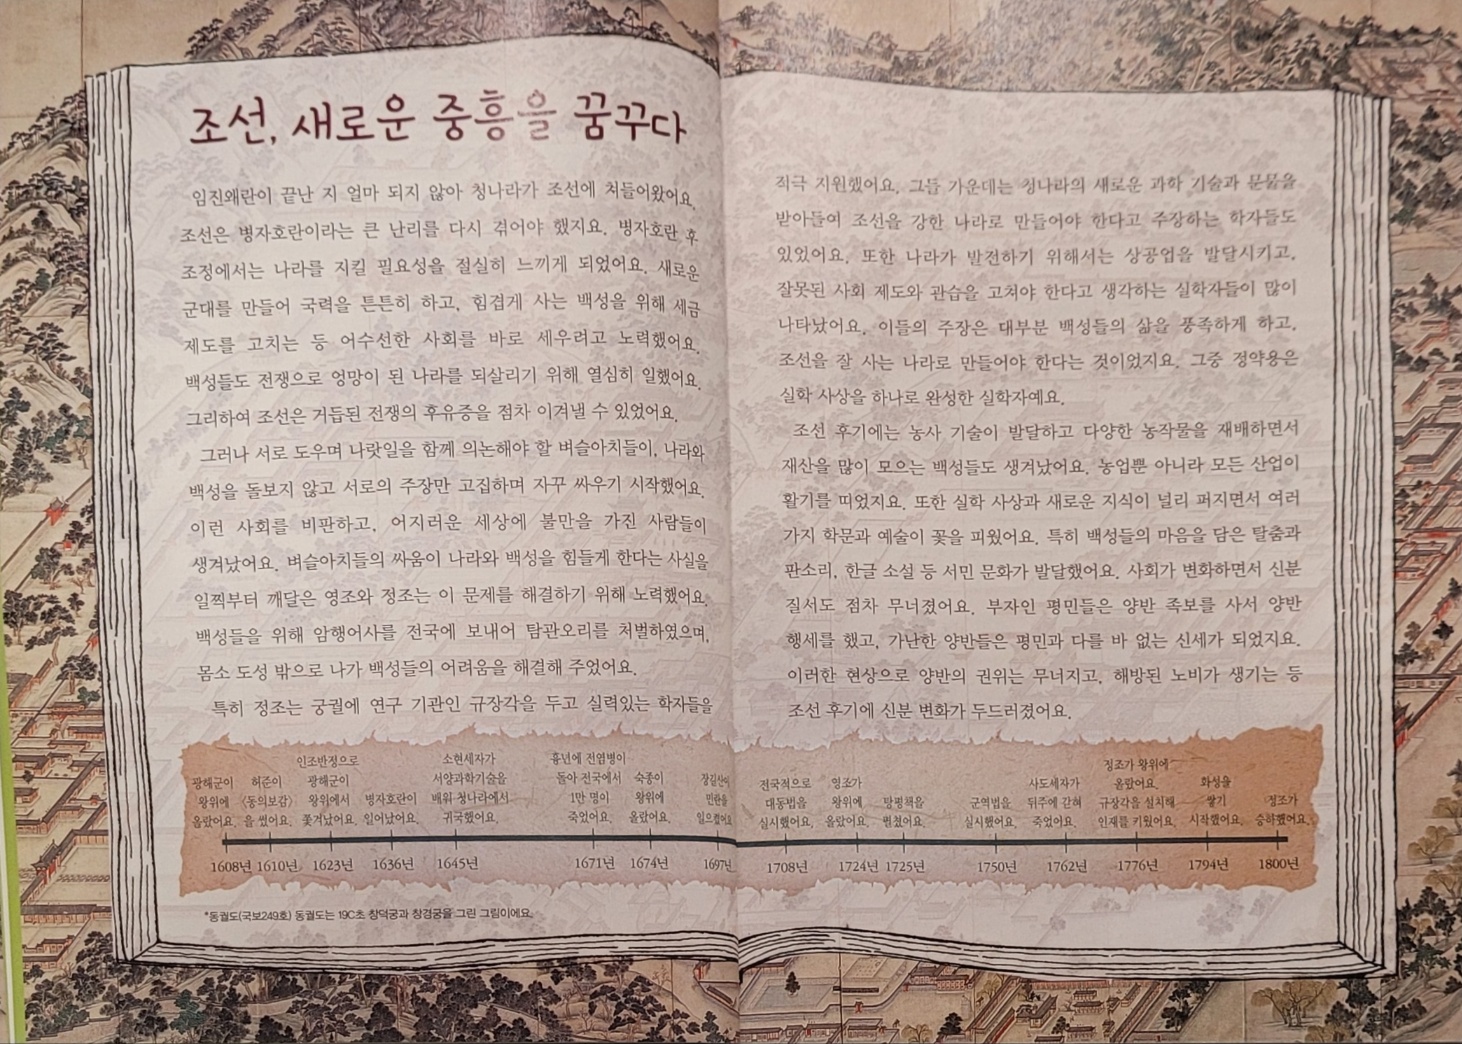 조선, 새로운 중흥을 꿈꾸다
임진왜란이 끝난 지 얼마 되지 않아 청나라가 조선에 쳐들어왔어요.
조선은 병자호란이라는 큰 난리를 다시 겪어야 했지요. 병자호란 후
조정에서는 나라를 지킬 필요성을 절실히 느끼게 되었어요. 새로운
군대를 만들어 국력을 튼튼히 하고, 힘겹게 사는 백성을 위해 세금
제도를 고치는 등 어수선한 사회를 바로 세우려고 노력했어요.
백성들도 전쟁으로 엉망이 된 나라를 되살리기 위해 열심히 일했어요.
그리하여 조선은 거듭된 전쟁의 후유증을 점차 이겨낼 수 있었어요.
그러나 서로 도우며 나랏일을 함께 의논해야 할 벼슬아치들이, 나라와
백성을 돌보지 않고 서로의 주장만 고집하며 자꾸 싸우기 시작했어요.
이런 사회를 비판하고, 어지러운 세상에 불만을 가진 사람들이
생겨났어요. 벼슬아치들의 싸움이 나라와 백성을 힘들게 한다는 사실을
일찍부터 깨달은 영조와 정조는 이 문제를 해결하기 위해 노력했어요.
백성들을 위해 암행어사를 전국에 보내어 탐관오리를 처벌하였으며,
몸소 도성 밖으로 나가 백성들의 어려움을 해결해 주었어요.
특히 정조는 궁궐에 연구 기관인 규장각을 두고 실력있는 학자들을
적극 지원했어요. 그들 가운데는 청나라의 새로운 과학 기술과 문물을
받아들여 조선을 강한 나라로 만들어야 한다고 주장하는 학자들도
있었어요. 또한 나라가 발전하기 위해서는 상공업을 발달시키고,
잘못된 사회 제도와 관습을 고쳐야 한다고 생각하는 실학자들이 많이
나타났어요. 이들의 주장은 대부분 백성들의 삶을 풍족하게 하고,
조선을 잘 사는 나라로 만들어야 한다는 것이었지요. 그중 정약용은
실학 사상을 하나로 완성한 실학자예요.
조선 후기에는 농사 기술이 발달하고 다양한 농작물을 재배하면서
재산을 많이 모으는 백성들도 생겨났어요. 농업뿐 아니라 모든 산업이
활기를 띠었지요. 또한 실학 사상과 새로운 지식이 널리 퍼지면서 여러
가지 학문과 예술이 꽃을 피웠어요. 특히 백성들의 마음을 담은 탈춤과
판소리, 한글 소설 등 서민 문화가 발달했어요. 사회가 변화하면서 신분
질서도 점차 무너졌어요. 부자인 평민들은 양반 족보를 사서 양반
행세를 했고, 가난한 양반들은 평민과 다를 바 없는 신세가 되었지요.
이러한 현상으로 양반의 권위는 무너지고, 해방된 노비가 생기는 등
조선 후기에 신분 변화가 두드러졌어요.
광해군이
왕위에
올랐어요.
1608년
허준이
〈동의보감〉
을 썼어요.
1610년
인조반정으로
광해군이
왕위에서
쫓겨났어요.
1623년
병자호란이
일어났어요.
1636년
소현세자가
서양과학기술을
배워 청나라에서
귀국했어요.
1645년
흉년에 전염병이
돌아 전국에서
1만 명이
죽었어요.
1671년
숙종이
왕위에
올랐어요.
1674년
장길산이
민란을
일으켰어요
1697년
전국적으로
대동법을
실시했어요.
1708년
영조가
왕위에
올랐어요.
1724년
탕평책을
펼쳤어요.
1725년
균역법을
실시했어요.
1750년
사도세자가
뒤주에 갇혀
죽었어요.
1762년
정조가 왕위에
올랐어요.
규장각을 설치해
인재를 키웠어요.
1776년
화성을
쌓기
시작했어요.
1794년
정조가
승하했어요.
1800년
*동궐도(국보249호) 동궐도는 19C초 창덕궁과 창경궁을 그린 그림이에요.